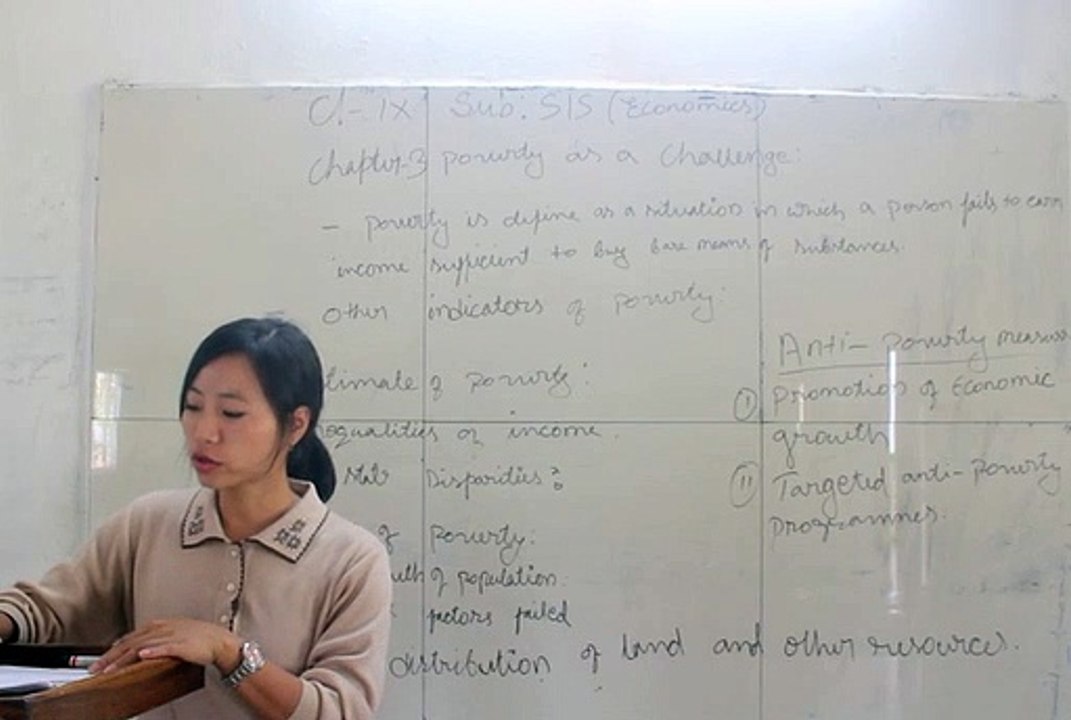 Cl.- IX Sub: S/S (Economics)
Chapter-3 poverty as a Challenge:
- poverty is define as a situation in which a person fails to earn
income sufficient to buy bare means of substances.
other indicators of poverty:
timate of poverty:
equalities of income.
State Disparities:
of poverty:
wth of population.
factors failed
distribution of land and other resources.
Anti- poverty measur
(I) Promotion of Economic
growth
(II) Targeted anti-poverty
programmes.